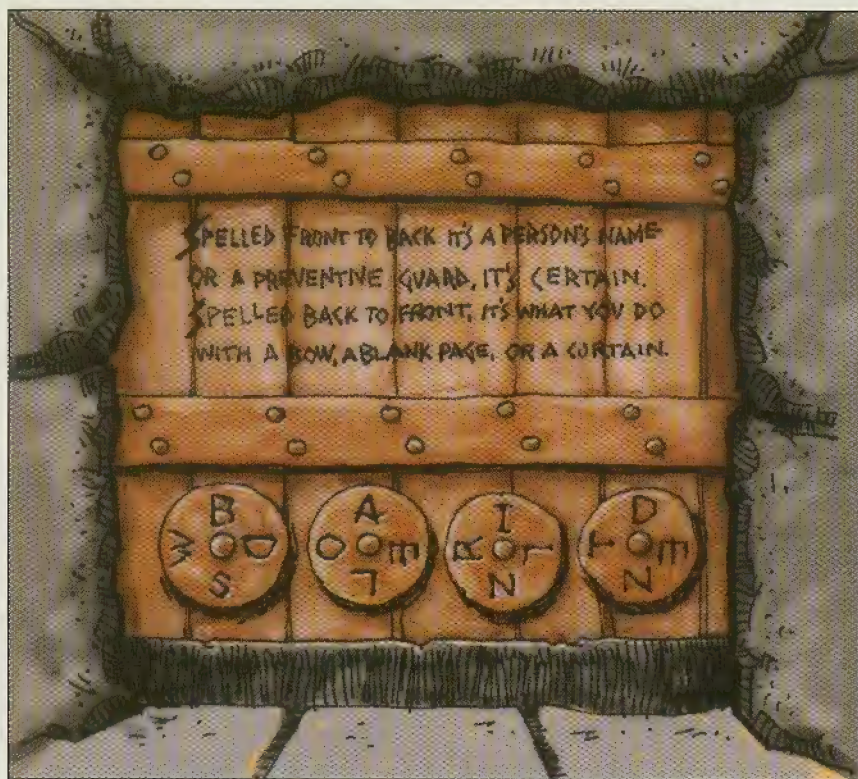 SPELLED FRONT TO BACK IT'S A PERSON'S NAME
OR A PREVENTIVE GUARD, IT'S CERTAIN.
SPELLED BACK TO FRONT, IT'S WHAT YOU DO
WITH A BOW, A BLANK PAGE, OR A CURTAIN.
B A I D
W D O E R T E
S L N N